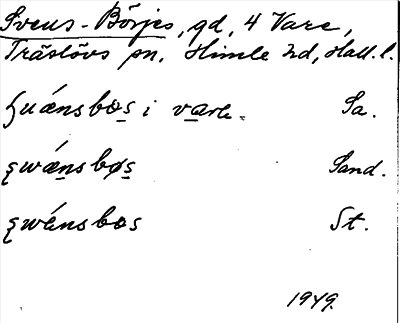 Svens-Börjes, gd, 4 Vare,
Träslövs sn. Himle hd, Hall. l.
ʂuǽnsbøs i vark. Sa.
ʂwǽnsbøs Sand.
ʂwǽnsbøs St.
1949.